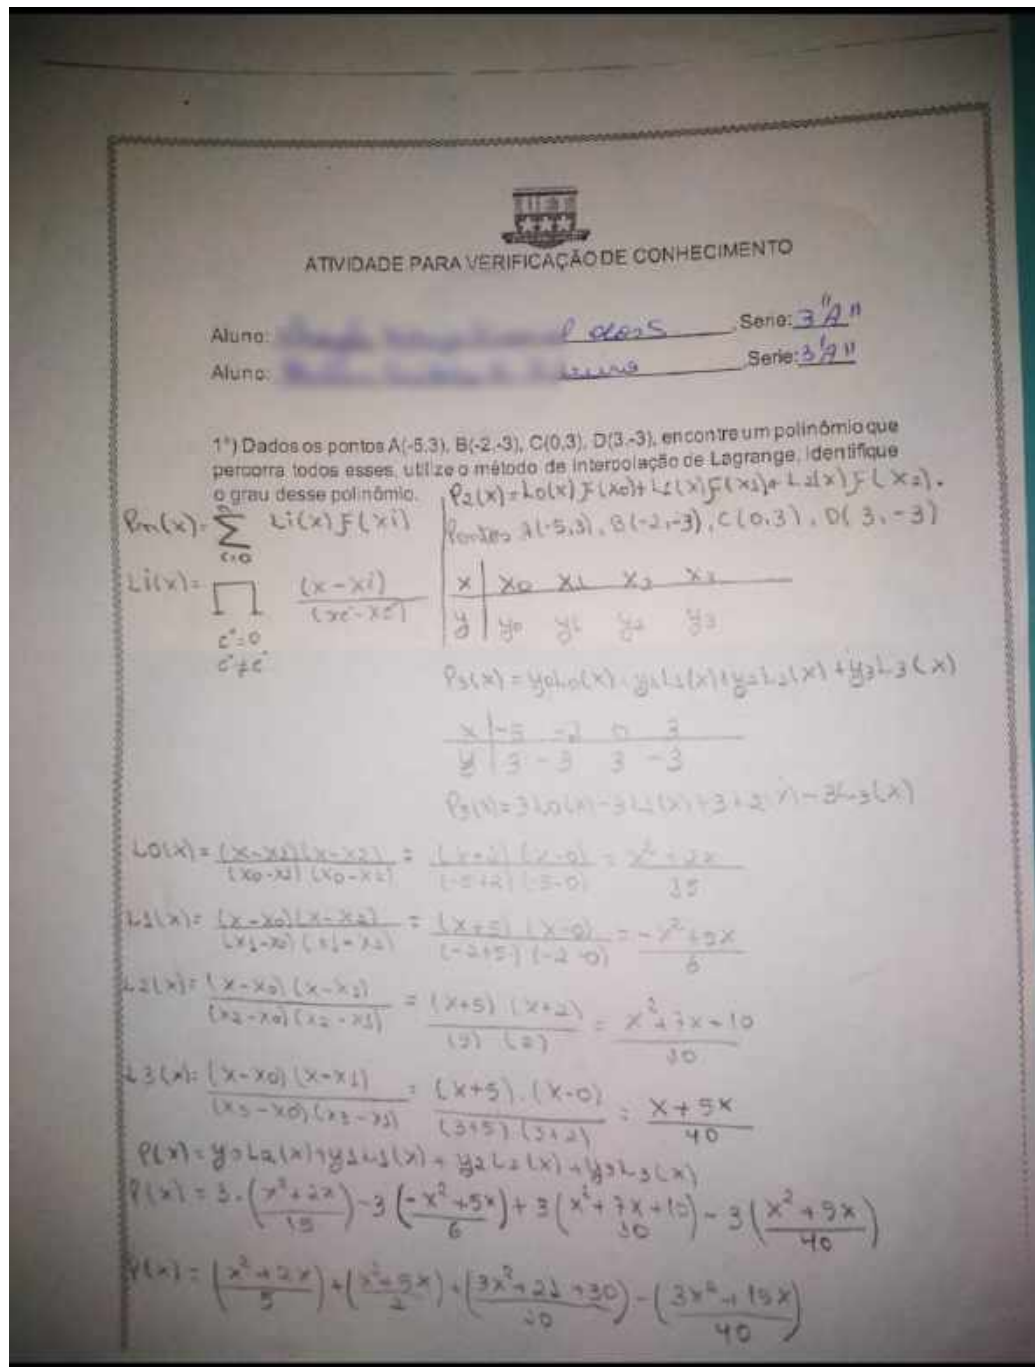 ATIVIDADE PARA VERIFICAÇÃO DE CONHECIMENTO
Aluno: dos S Serie: 3"A"
Aluno: Serie: 3"A"
1°) Dados os pontos A(-5,3), B(-2,-3), C(0,3), D(3,-3), encontre um polinômio que
percorra todos esses, utilize o método de interpolação de Lagrange, identifique
o grau desse polinômio. P2(x)=L0(x)F(x0)+L1(x)F(x1)+L2(x)F(x2).
Pn(x)= Σ i=0 Li(x)F(xi)
Pontos A(-5,3), B(-2,-3), C(0,3), D(3,-3)
Li(x)= ∏ (x-xi)
x | x0 x1 x2 x3
y | y0 y1 y2 y3
P3(x)=y0L0(x)+y1L1(x)+y2L2(x)+y3L3(x)
x | -5 -2 0 3
y | 3 -3 3 -3
P3(x)=3L0(x)-3L1(x)+3 -3L3(x)
L0(x)= (x-x1)(x-x2) / (x0-x1)(x0-x2) = (x+2)(x-0) / (-5+2)(-5-0) = x²+2x / 15
L1(x)= (x-x0)(x-x2) / (x1-x0)(x1-x2) = (x+5)(x-0) / (-2+5)(-2-0) = -x²+5x / 6
L2(x)= (x-x0)(x-x1) / (x2-x0)(x2-x1) = (x+5)(x+2) / (5)(2) = x²+7x+10 / 10
L3(x)= (x-x0)(x-x1) / (x3-x0)(x3-x1) = (x+5).(x-0) / (3+5).(3+2) = x+5x / 40
P(x)=y0L0(x)+y1L1(x)+y2L2(x)+y3L3(x)
P(x)=3.(x²+2x / 15)-3(-x²+5x / 6)+3(x²+7x+10 / 10)-3(x²+5x / 40)
P(x)=(x²+2x / 5)+(x²+5x / 2)+(3x²+21+30 / 10)-(3x²+15x / 40)